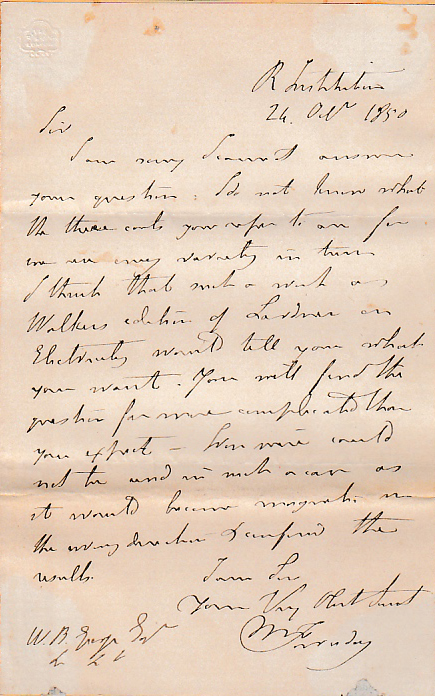 R Institution
24. Octr 1850
Sir
I am sorry I cannot answer
your question: I do not know what
the three coils you refer to are for
we use every variety in turn
I think that such a work as
Walkers edition of Lardner on
Electricity would tell you what
you want. You will find the
question far more complicated than
you expect - Iron wire could
not be used in such a case as
it would become magnetic in
the wrong direction & confuse the
results.
I am Sir
Your Very Obt Servt
M Faraday
W. B. Esqr